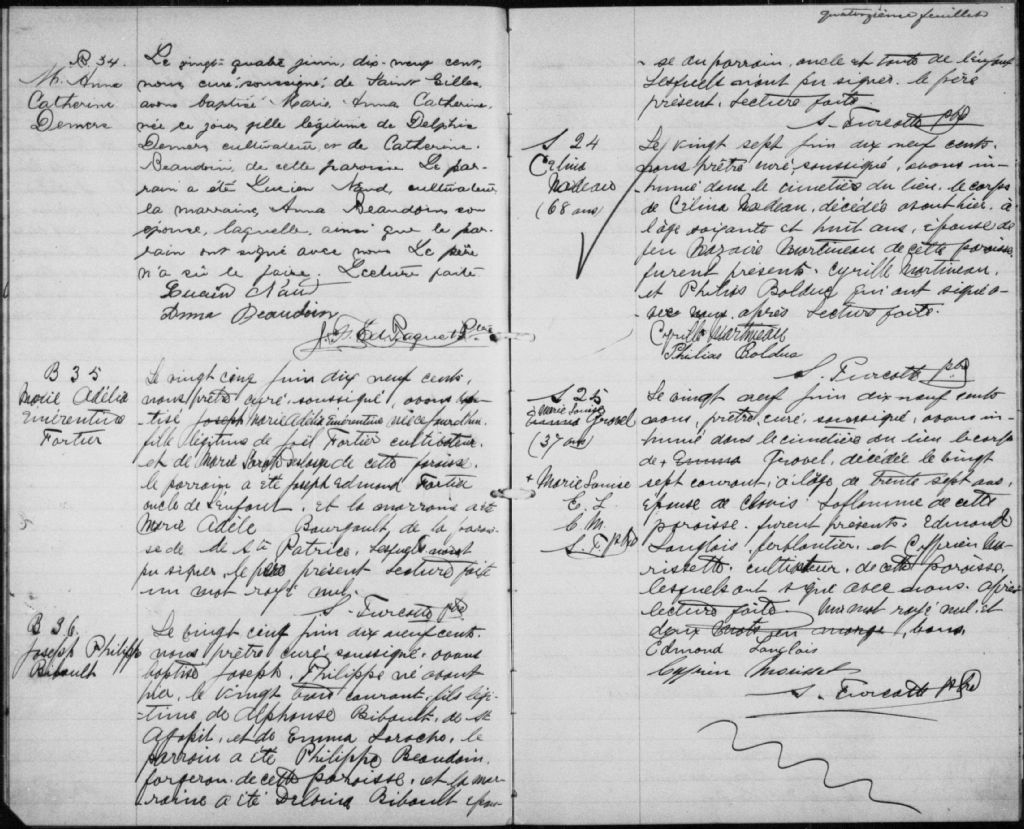 B. 34.
M. Anna
Catherine
Demers
Le vingt-quatre juin, dix-neuf cent,
nous, curé, soussigné, de Saint Gilles,
avons baptisé Marie Anna Catherine,
née ce jour, fille légitime de Delphis
Demers cultivateur et de Catherine
Beaudoin de cette paroisse. Le par-
rain a été Lucien Naud, cultivateur,
la marraine, Anna Beaudoin son
épouse, laquelle, ainsi que le par-
rain ont signé avec nous. Le père
n'a su le faire. Lecture faite
Lucien Naud
Anna Beaudoin
J. Ed. Paquet Ptre
B 35
Marie Adélia
Emérentine
Fortier
Le vingt cinq juin dix neuf cents,
nous, prêtre curé, soussigné, avons bap-
tisé Joseph Marie Adélia Emérentine née aujourd'hui,
fille légitime de Joël Fortier cultivateur,
et de Marie de cette paroisse.
le parrain a été Joseph Edmond Fortier
oncle de l'enfant, et la marraine a été
Marie Adèle Bourgault, de la parois-
se de St Patrice, lesquels n'ont
pu signer, le père présent. Lecture faite
un mot rayé nul.
S. Turcotte ptre
B 36.
Joseph Philippe
Bibault
Le vingt cinq juin dix neuf cents,
nous prêtre curé soussigné, avons
baptisé Joseph Philippe né
le vingt trois courant, fils légi-
-time de Alphonse Bibault, de St
Agapit, et de Emma Laroche, le
parrain a été Philippe Beaudoin,
forgeron de cette paroisse, et la mar-
raine a été Bibault épou-
quatorzième feuillet
-se du parrain, oncle et tante de l'enfant
lesquels n'ont pu signer. le père
présent. Lecture faite.
S. Turcotte ptre
S 24
Célina
Nadeau
(68 ans)
Le vingt sept juin dix neuf cents
nous prêtre curé, soussigné, avons in-
humé dans le cimetière du lieu, le corps
de Célina Nadeau, décédée avant hier, à
l'âge soixante et huit ans, épouse de
feu Nazaire Martineau de cette paroisse,
furent présents, Cyrille Martineau,
et Philias Bolduc qui ont signé a-
vec nous, après lecture faite.
Cyrille Martineau
Philias Bolduc
S. Turcotte ptre
S 25
Marie Louise
Emma Grovel
(37 ans)
+ Marie Louise
E. L.
C. M.
S. T. ptre
Le vingt neuf juin dix neuf cents
nous, prêtre, curé, soussigné, avons in-
humé dans le cimetière du lieu le corps
de + Emma Grovel, décédée le vingt
sept courant, à l'âge de trente sept ans,
épouse de Clovis Laflamme de cette
paroisse. furent présents, Edmond
Langlois, ferblantier, et Cyprien Mo-
rissette, cultivateur, de cette paroisse,
lesquels ont signé avec nous, après
lecture faite. Un mot rayé nul et
deux mots en marge, bons.
Edmond Langlois
Cyprien
S. Turcotte ptre